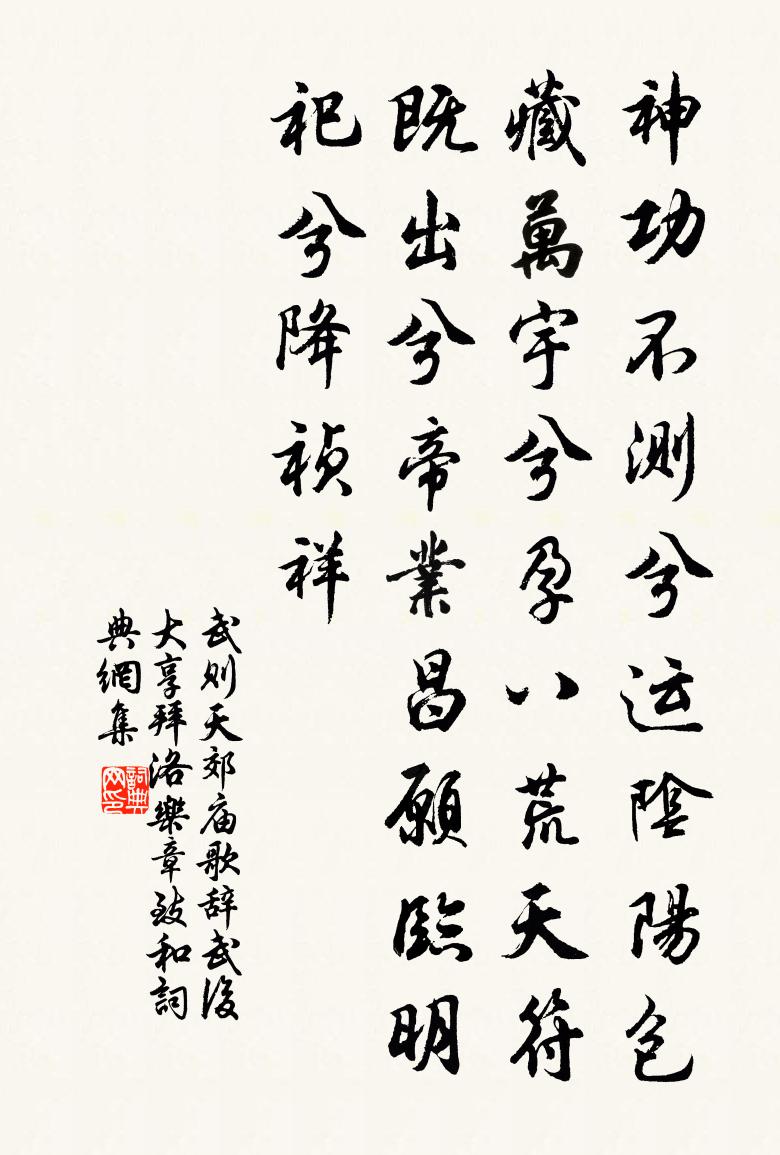 神功不測兮运陰陽包
藏萬宇兮孕八荒天符
既出兮帝業昌願臨明
祀兮降禎祥
武则天郊庙歌辞武後
大享拜洛樂章致和詞
典網集
詞典網印